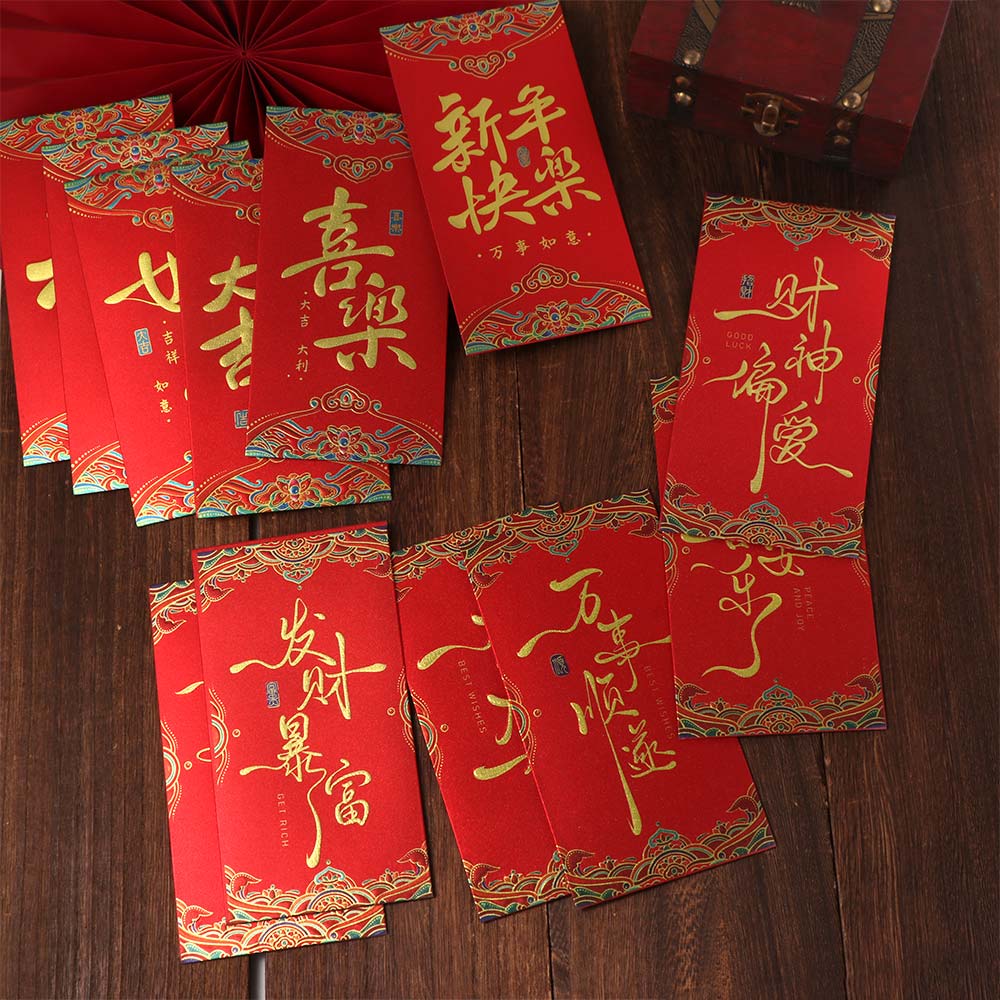 新年
快樂
·万事如意·
喜樂
喜
樂
·大吉 大利·
大
吉
大吉
·吉祥 如意
财神
偏爱
招财
GOOD
LUCK
乐
PEACE
AND JOY
发财
暴富
GET RICH
万事
顺遂
BEST WISHES
BEST WISHES